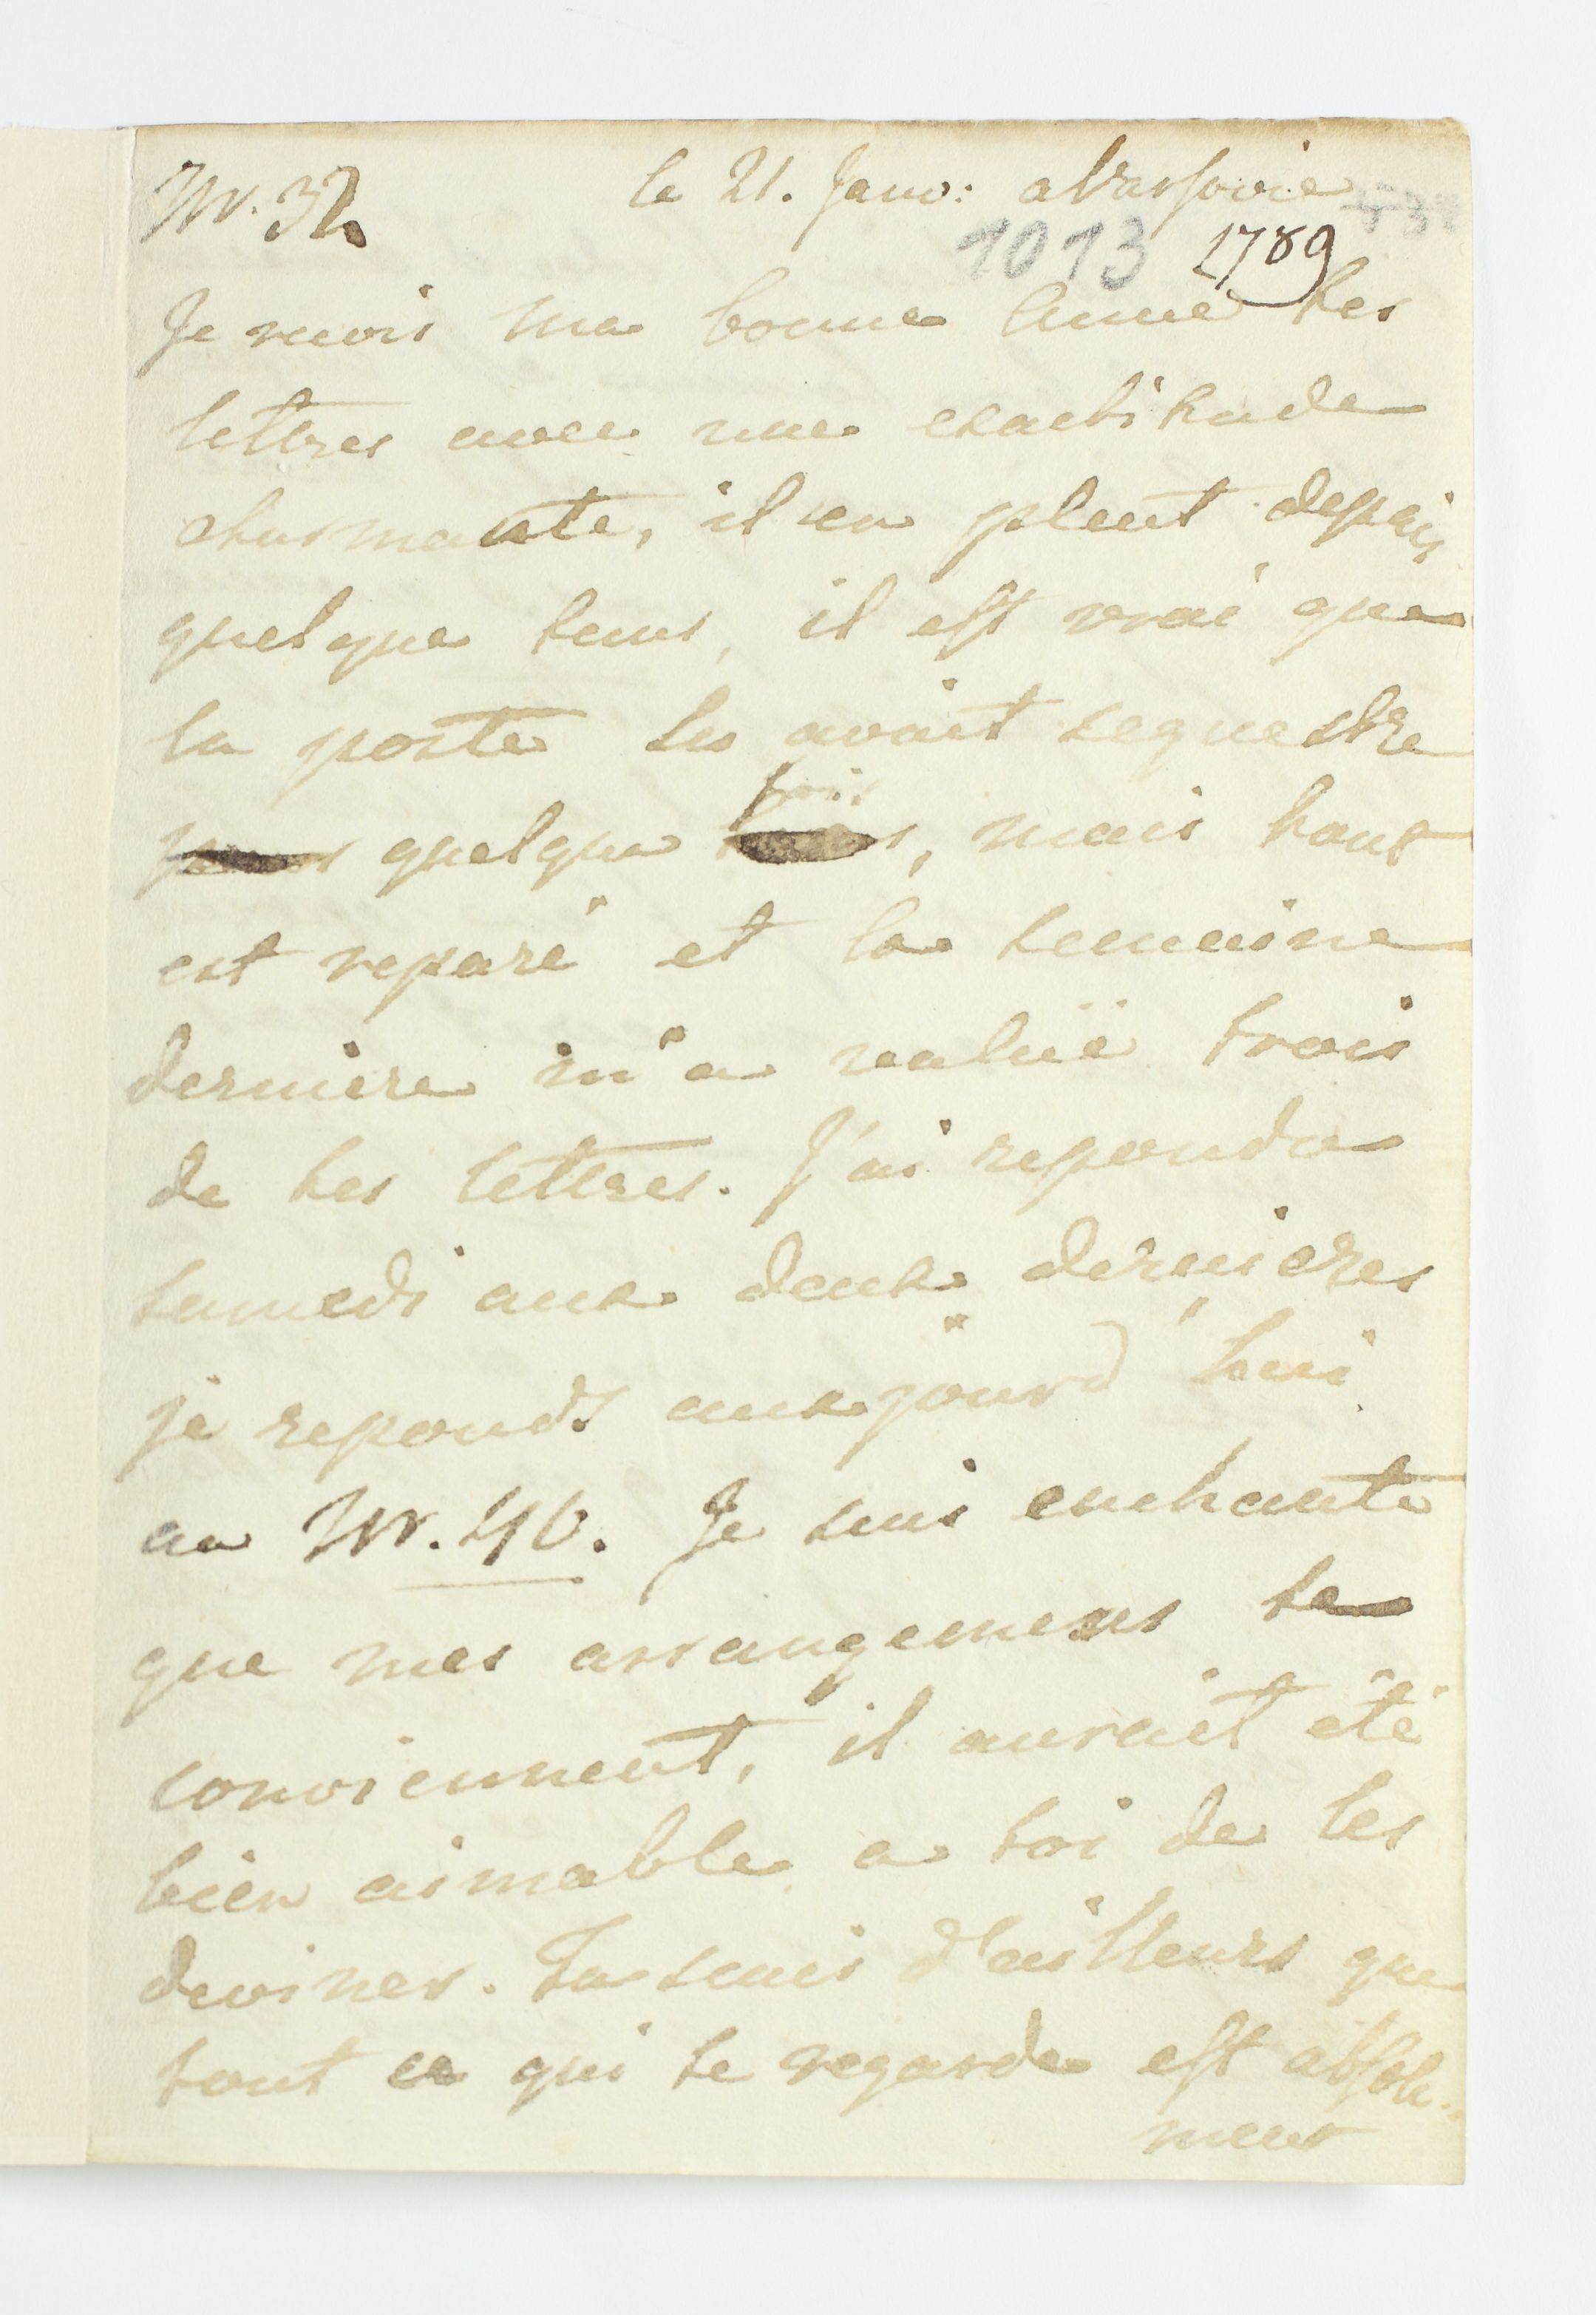 Nr. 32 le 21. Janv: a Varsovie
1013 1789
Je reçois ma bonne Anne tes
lettres avec une exactitude
charmante, il en pleut depuis
quelque tems, il est vrai que
la poste les avait sequestre
quelque fois, mais tout
est reparé et la semaine
derniere m'a valüe trois
de tes lettres. J'ai repondu
samedi aux deux dernieres
je reponds aux jourd'hui
au Nr. 46. Je suis enchante
que mes arrangemens te
conviennent, il aurait été
bien aimable a toi de les
deviner. Tu sais d'ailleurs que
tout ce qui te regarde est absolu-
ment